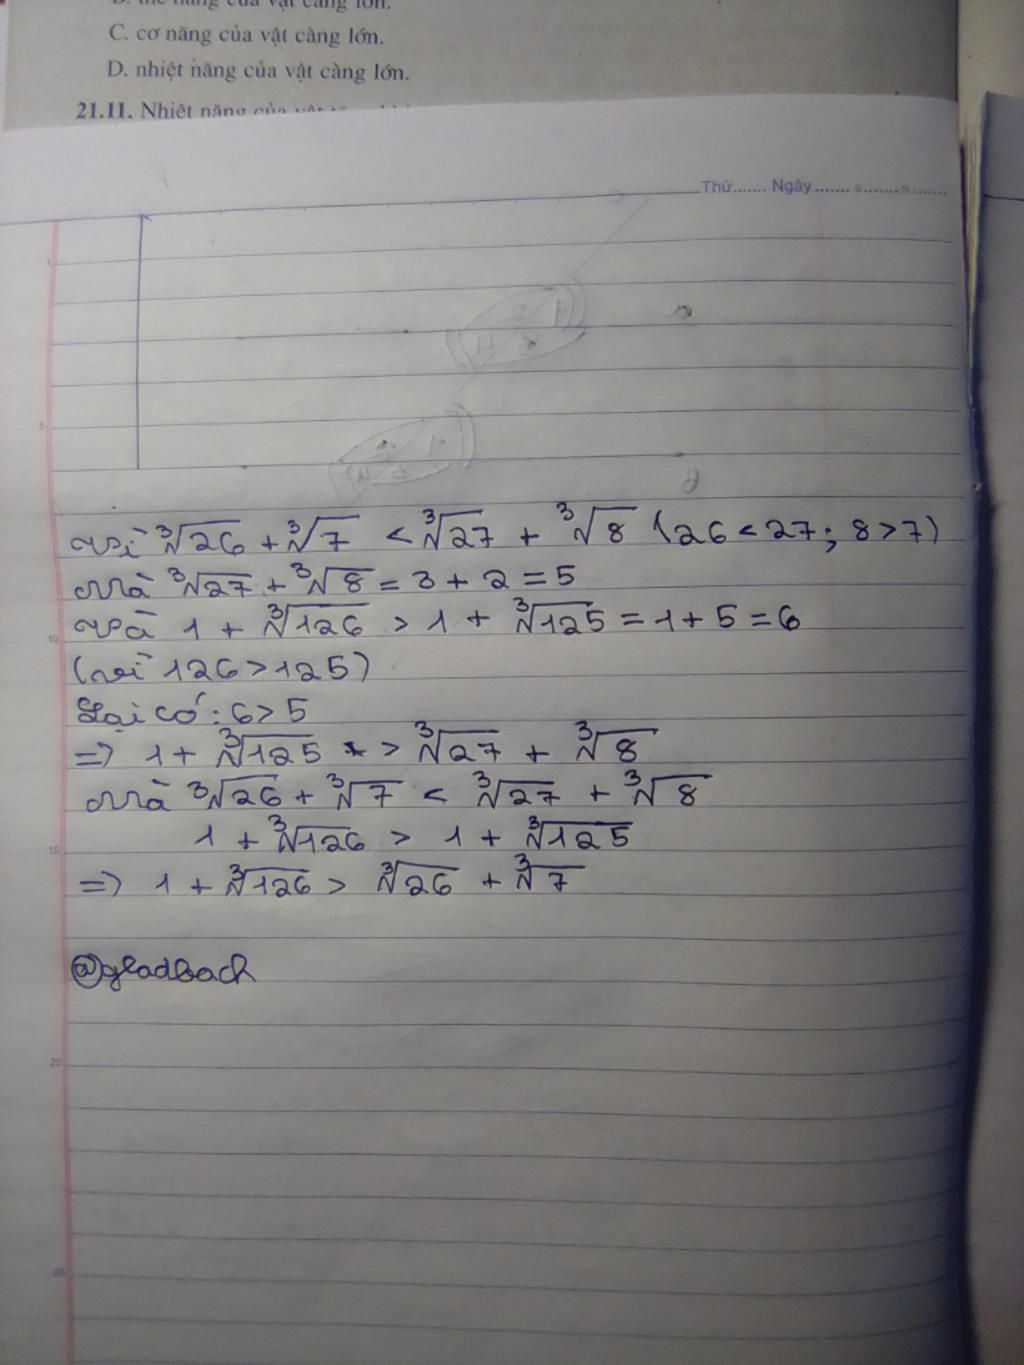 C. cơ năng của vật càng lớn.
D. nhiệt năng của vật càng lớn.
21.11. Nhiệt năng của
Thứ....... Ngày ....... s ....... s .......
1
5
vì ∛26 + ∛7 < ∛27 + ∛8 (26 < 27; 8 > 7)
Mà ∛27 + ∛8 = 3 + 2 = 5
10
và 1 + ∛126 > 1 + ∛125 = 1 + 5 = 6
(vì 126 > 125)
Lại có: 6 > 5
=> 1 + ∛125 > ∛27 + ∛8
Mà ∛26 + ∛7 < ∛27 + ∛8
15
1 + ∛126 > 1 + ∛125
=> 1 + ∛126 > ∛26 + ∛7
@gladbach
20
25